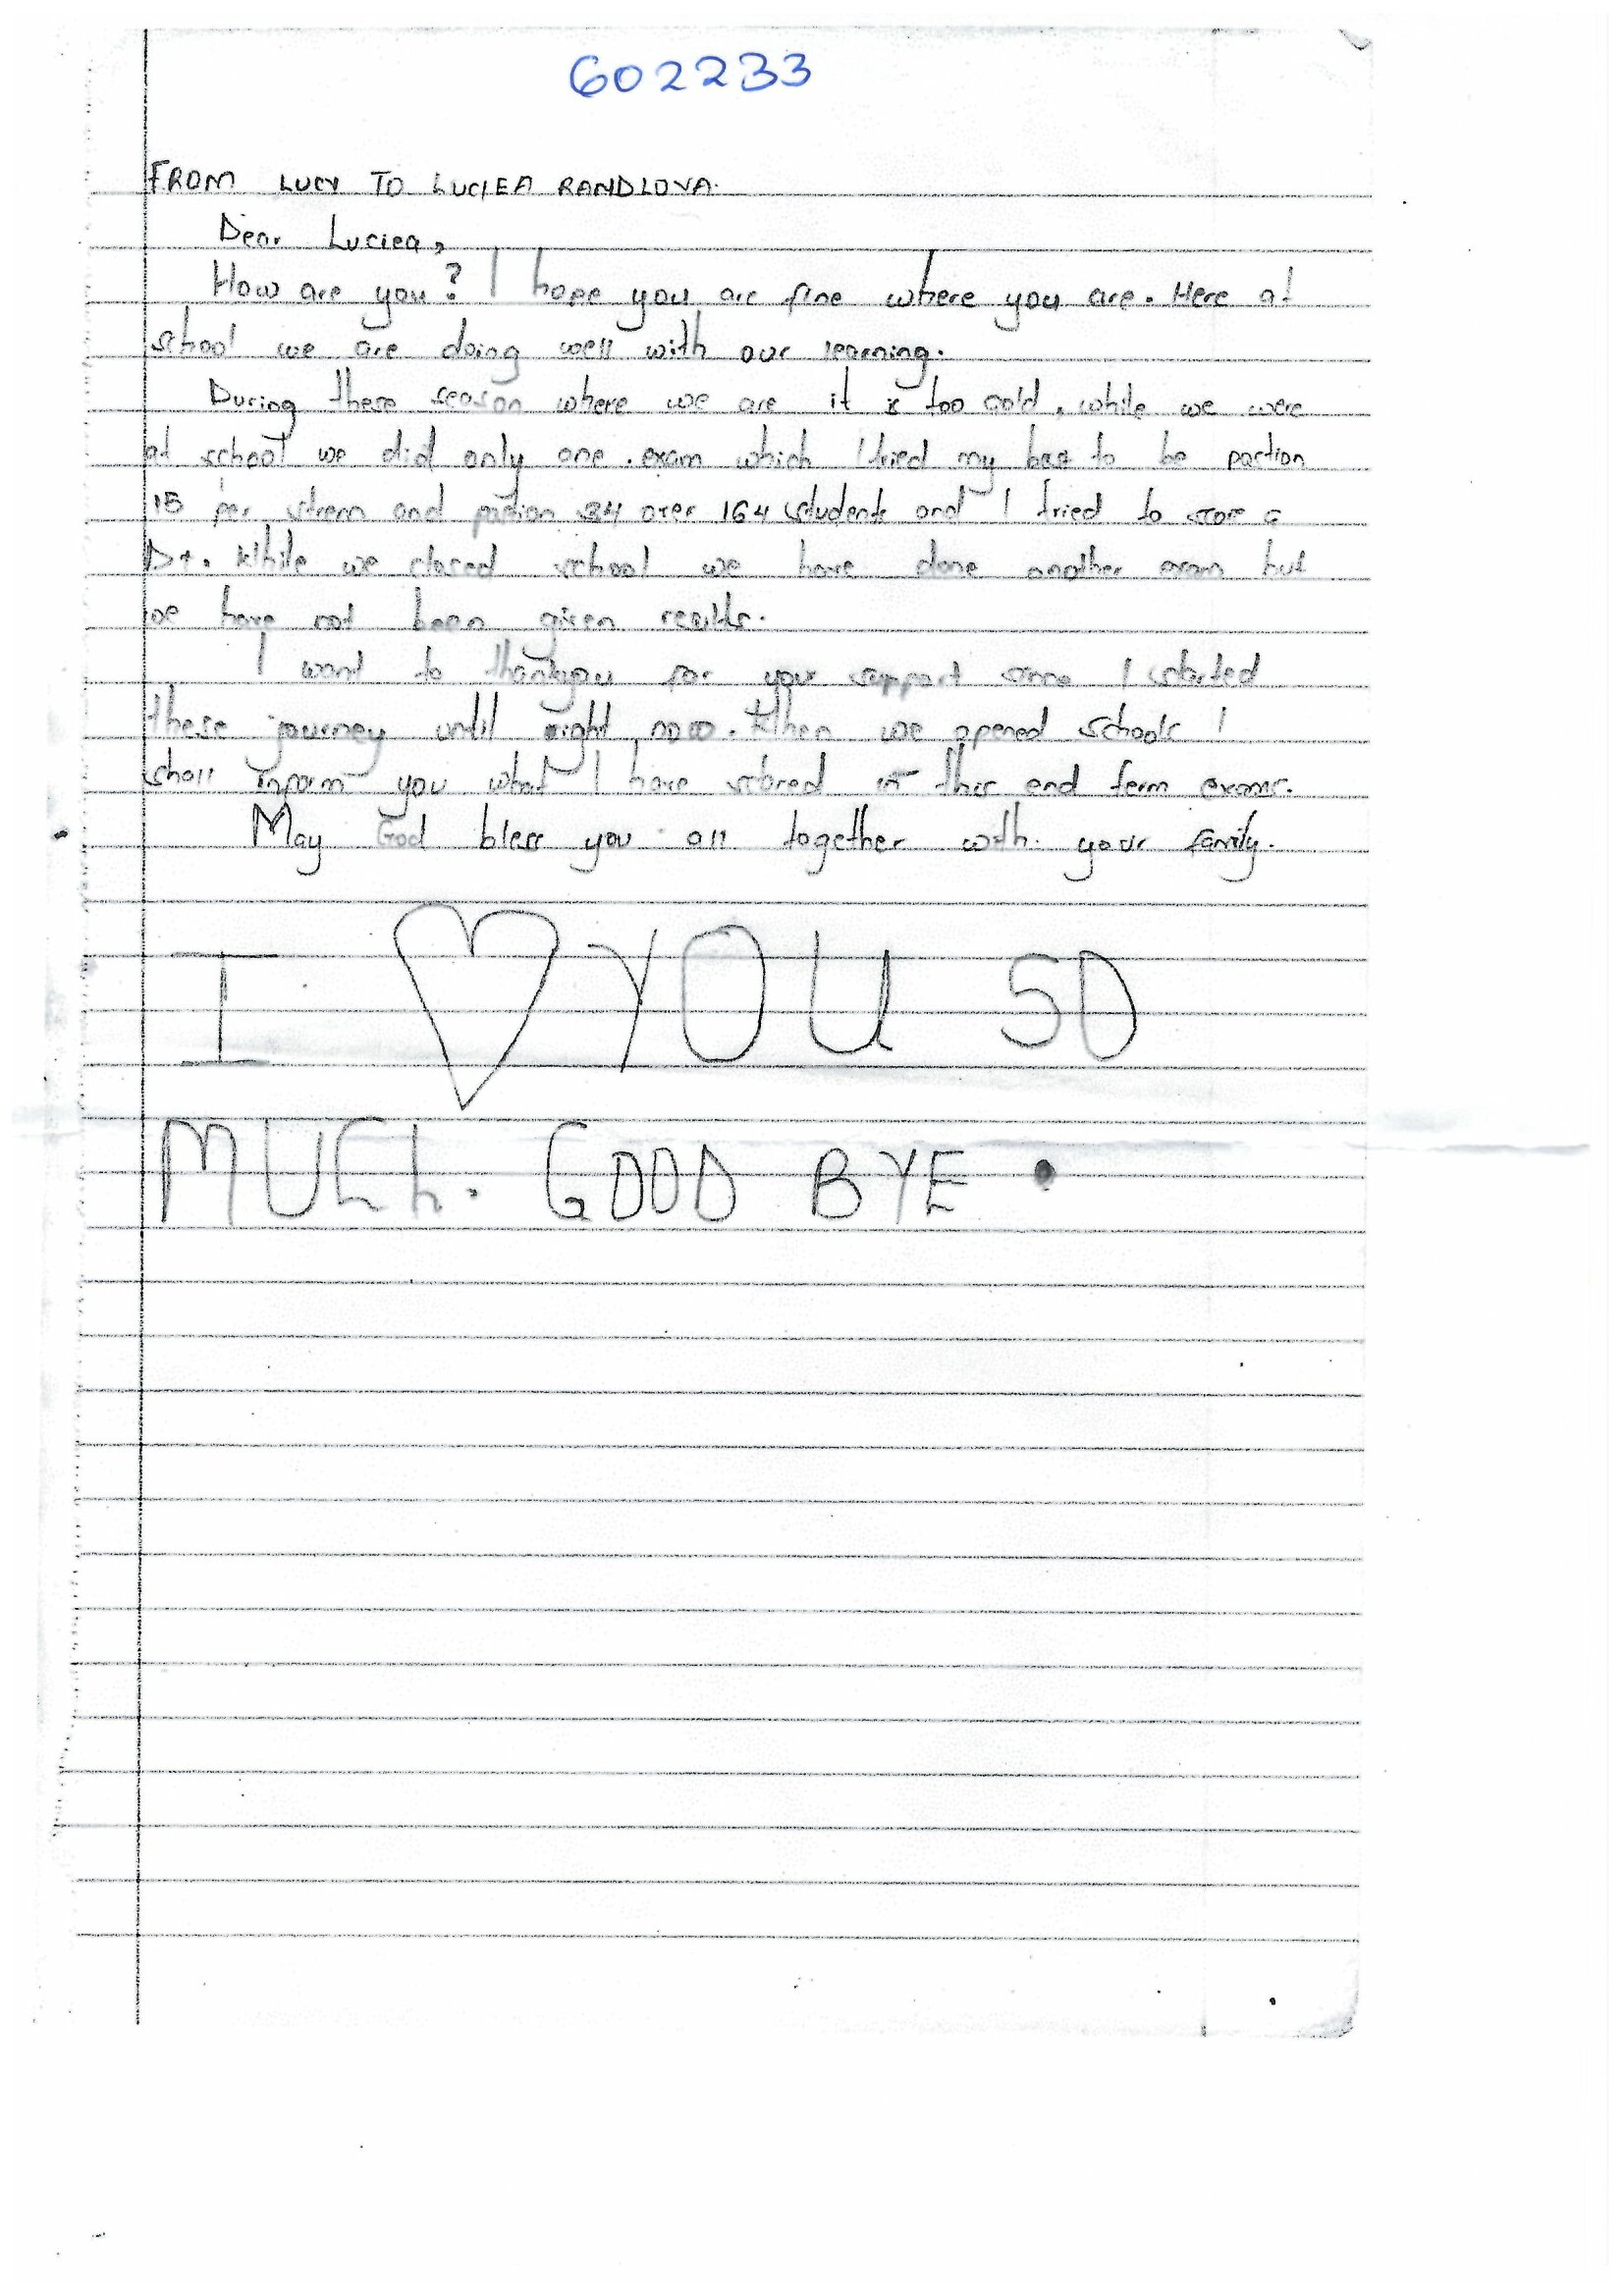 602233
FROM LUCY TO LUCIEA RANDLOVA.
Dear Luciea,
How are you? I hope you are fine where you are. Here at
school we are doing well with our learning.
During these season where we are it is too cold, while we were
at school we did only one exam which I tried my best to be postion
15 per strem and postion 34 over 164 students and I tried to score a
D+. While we closed school we have done another exam but
we have not been given results.
I want to thankyou for your support since I started
these journey until right now. When we opened schools I
shall inform you what I have scored in this end term exams.
May God bless you all together with your family.
I ♡ YOU SO
MUCH. GOOD BYE.